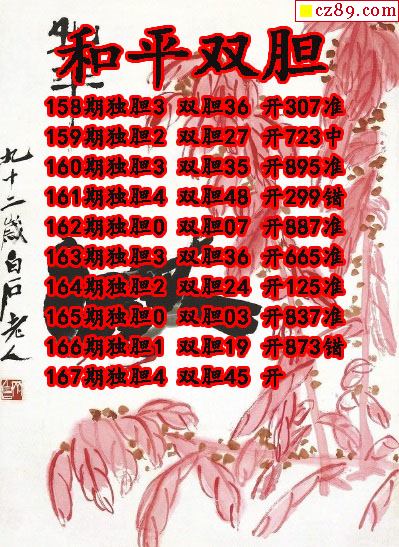 cz89.com
和平双胆
158期独胆3 双胆36 开307准
159期独胆2 双胆27 开723中
160期独胆3 双胆35 开895准
161期独胆4 双胆48 开299错
162期独胆0 双胆07 开887准
163期独胆3 双胆36 开665准
164期独胆2 双胆24 开125准
165期独胆0 双胆03 开837准
166期独胆1 双胆19 开873错
167期独胆4 双胆45 开
九十二岁白石老人